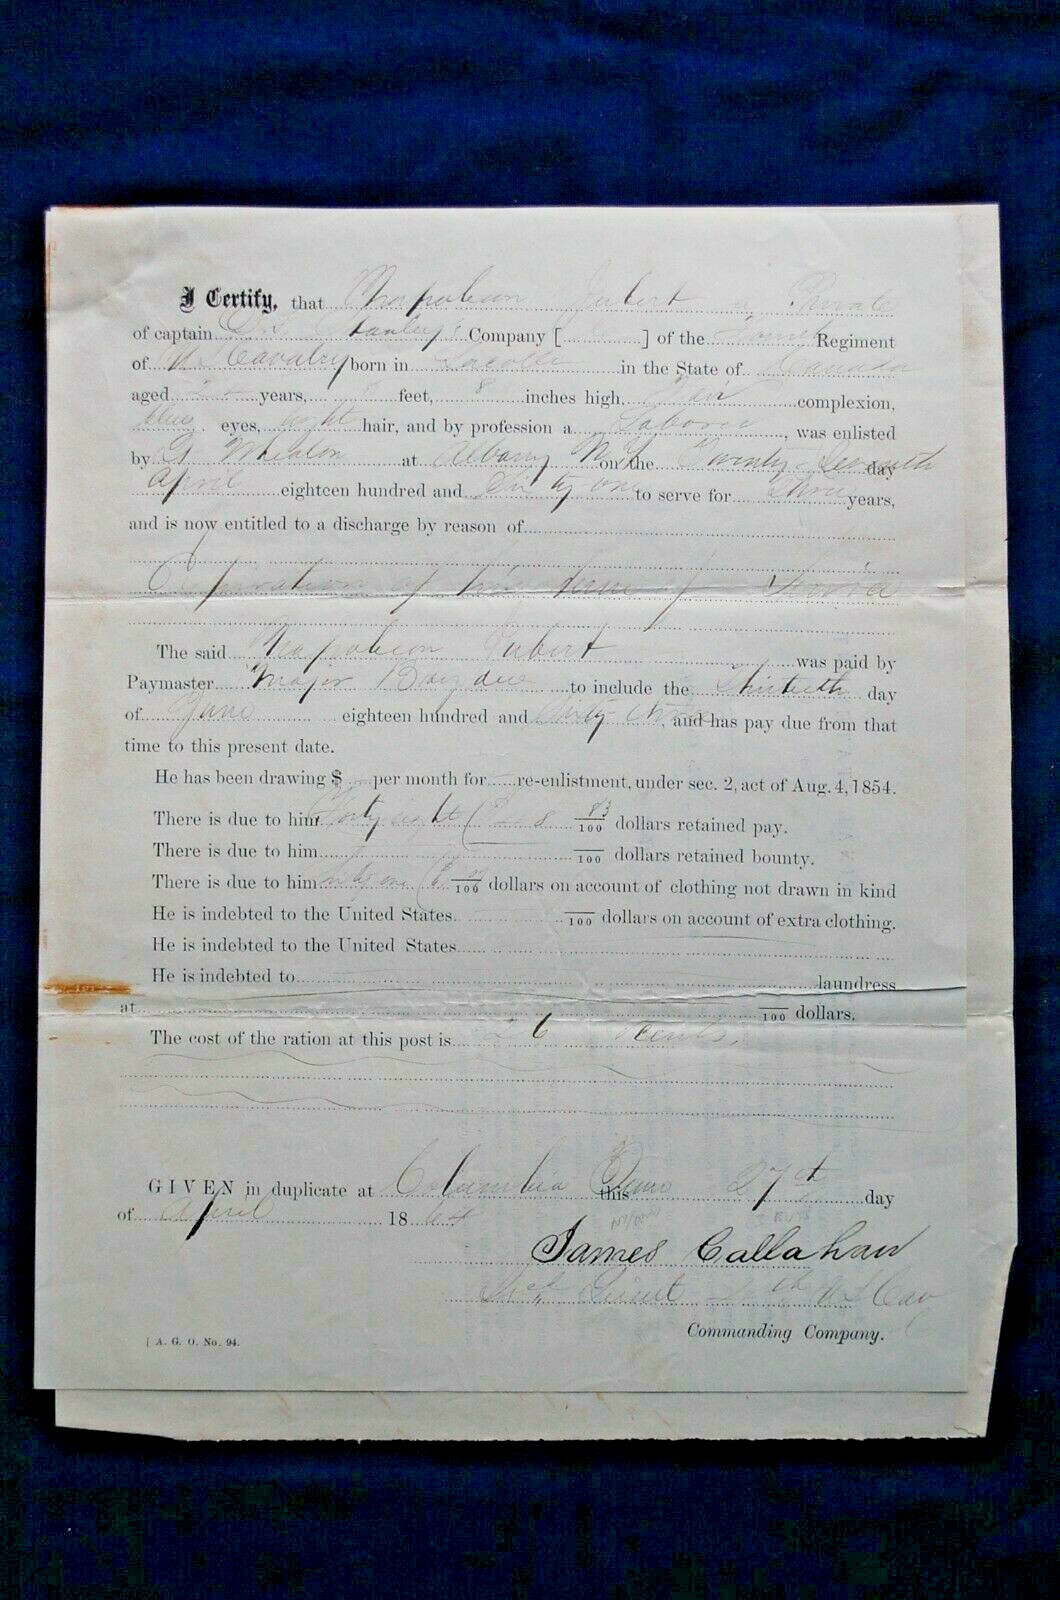 I Certify, that Napoleon Jubert a Private
of captain D. S. Stanley's Company [ ] of the Fourth Regiment
of U S Cavalry born in Lacolle in the State of Canada
aged years, feet, 8 inches high, Fair complexion,
blue eyes, light hair, and by profession a Laborer, was enlisted
by G Whealon at Albany N.Y. on the Twenty-Seventh day
April eighteen hundred and Sixty one to serve for Three years,
and is now entitled to a discharge by reason of
Expiration of his term of Service
The said Napoleon Jubert was paid by
Paymaster Major to include the Thirtieth day
of June eighteen hundred and Sixty Three, and has pay due from that
time to this present date.
He has been drawing $ per month for re-enlistment, under sec. 2, act of Aug. 4, 1854.
There is due to him eight 83/100 dollars retained pay.
There is due to him /100 dollars retained bounty.
There is due to him /100 dollars on account of clothing not drawn in kind
He is indebted to the United States. /100 dollars on account of extra clothing.
He is indebted to the United States
He is indebted to laundress
at /100 dollars.
The cost of the ration at this post is 26 cents.
GIVEN in duplicate at Columbia Tenn this 27st day
of April 1864
James Callahan
Lieut 4th U S Cav
Commanding Company.
[ A. G. O. No. 94.